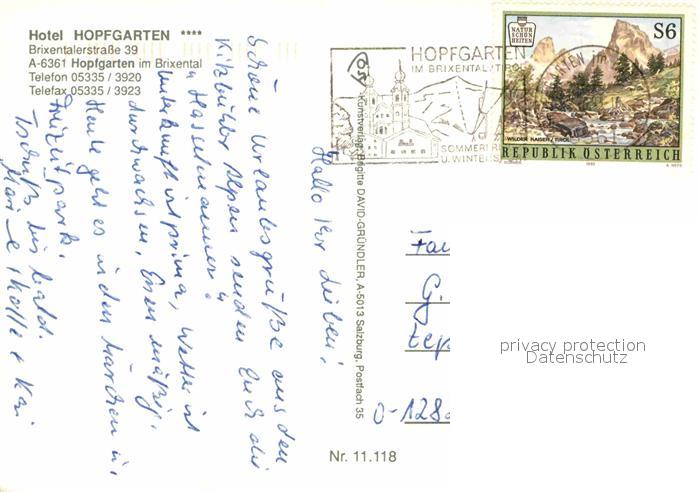 Hotel HOPFGARTEN ****
Brixentalerstraße 39
A-6361 Hopfgarten im Brixental
Telefon 05335 / 3920
Telefax 05335 / 3923
Hallo Ihr Lieben!
Schöne Urlaubsgrüße aus den
Kitzbühler Alpen senden Euch die
"Hasselmänner".
Unterkunft ist prima, Wetter ist
durchwachsen, Essen mäßig.
Heute geht es in den Märchen u.
Freizeitpark.
Tschüß bis bald.
+ Kai
Kunstverlag Brigitte DAVID-GRÜNDLER, A-5013 Salzburg, Postfach 35
Nr. 11.118
HOPFGARTEN
IM BRIXENTAL/TIROL
SOMMER
U. WINTER
NATUR
SCHÖN
HEITEN
S6
WILDER KAISER / TIROL
REPUBLIK ÖSTERREICH
Fa
O-128
privacy protection
Datenschutz